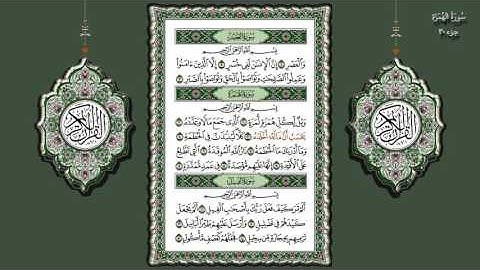 سُورَةُ الهُمَزَة
جزء ٣٠
سُورَةُ العَصْرِ
بِسْمِ اللَّهِ الرَّحْمَٰنِ الرَّحِيمِ
وَالْعَصْرِ ۝١ إِنَّ الْإِنسَانَ لَفِي خُسْرٍ ۝٢ إِلَّا الَّذِينَ ءَامَنُوا
وَعَمِلُوا الصَّالِحَاتِ وَتَوَاصَوْا بِالْحَقِّ وَتَوَاصَوْا بِالصَّبْرِ ۝٣
سُورَةُ الهُمَزَةِ
بِسْمِ اللَّهِ الرَّحْمَٰنِ الرَّحِيمِ
وَيْلٌ لِّكُلِّ هُمَزَةٍ لُّمَزَةٍ ۝١ الَّذِي جَمَعَ مَالًا وَعَدَّدَهُ ۝٢
يَحْسَبُ أَنَّ مَالَهُ أَخْلَدَهُ ۝٣ كَلَّا لَيُنبَذَنَّ فِي الْحُطَمَةِ ۝٤
وَمَا أَدْرَاكَ مَا الْحُطَمَةُ ۝٥ نَارُ اللَّهِ الْمُوقَدَةُ ۝٦ الَّتِي تَطَّلِعُ
عَلَى الْأَفْئِدَةِ ۝٧ إِنَّهَا عَلَيْهِم مُّؤْصَدَةٌ ۝٨ فِي عَمَدٍ مُّمَدَّدَةٍ ۝٩
سُورَةُ الفِيلِ
بِسْمِ اللَّهِ الرَّحْمَٰنِ الرَّحِيمِ
أَلَمْ تَرَ كَيْفَ فَعَلَ رَبُّكَ بِأَصْحَابِ الْفِيلِ ۝١ أَلَمْ يَجْعَلْ
كَيْدَهُمْ فِي تَضْلِيلٍ ۝٢ وَأَرْسَلَ عَلَيْهِمْ طَيْرًا أَبَابِيلَ ۝٣
تَرْمِيهِم بِحِجَارَةٍ مِّن سِجِّيلٍ ۝٤ فَجَعَلَهُمْ كَعَصْفٍ مَّأْكُولٍ ۝٥
القرآن الكريم
القرآن الكريم